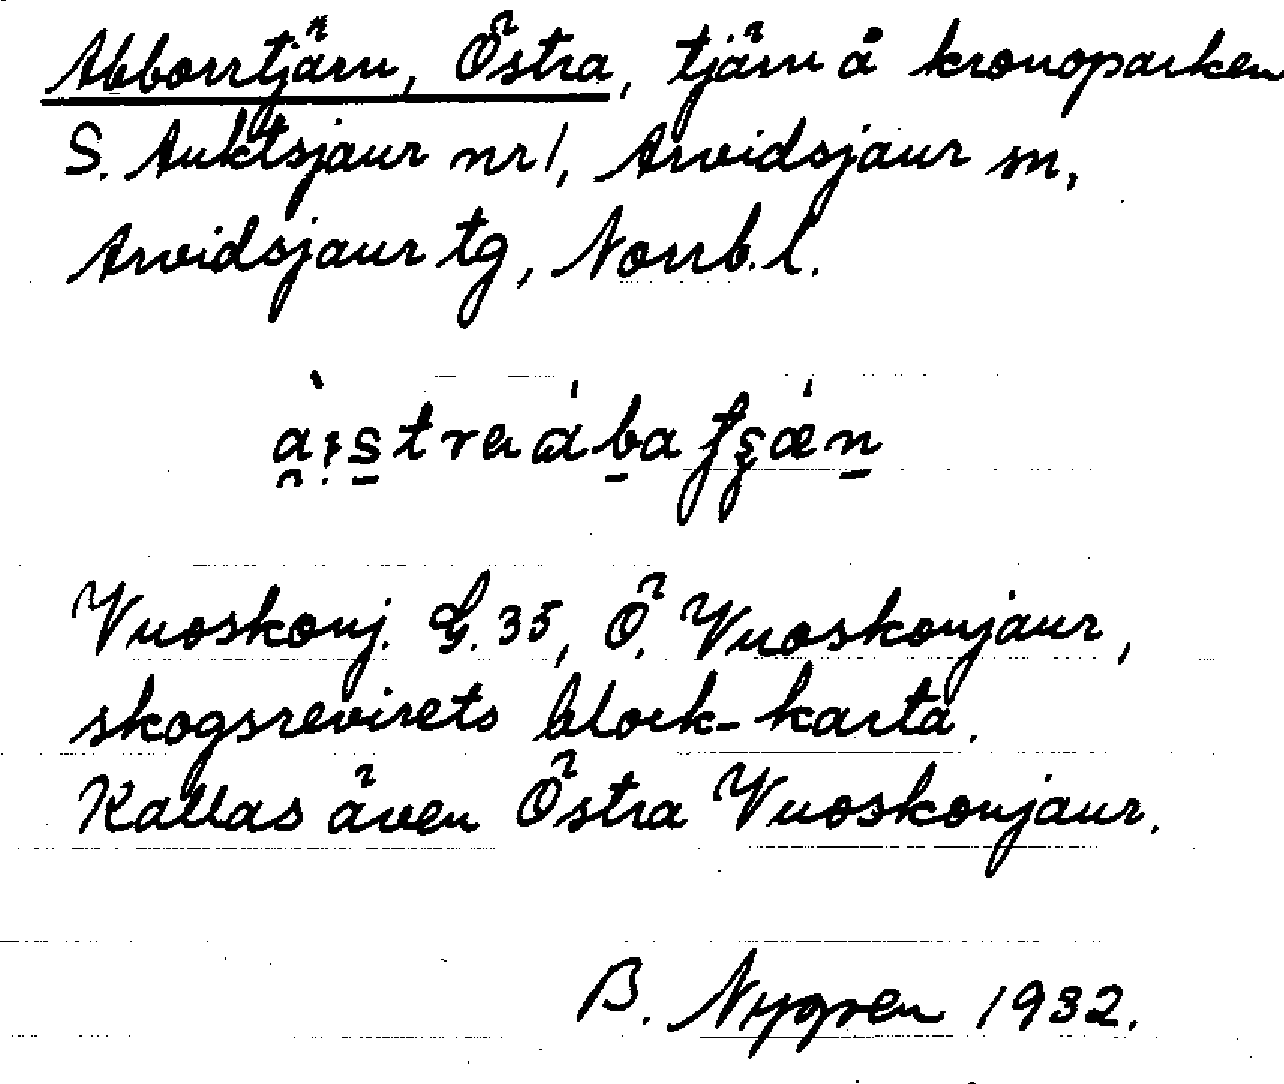 Abborrtjärn, Östra, tjärn å kronoparken
S. Auktsjaur nr 1, Arvidsjaur sn,
Arvidsjaur tg, Norrb. l.
Vuoskonj. G. 35, Ö. Vuoskonjaur,
skogsrevirets block-karta.
Kallas även Östra Vuoskonjaur.
B. Nygren 1932.